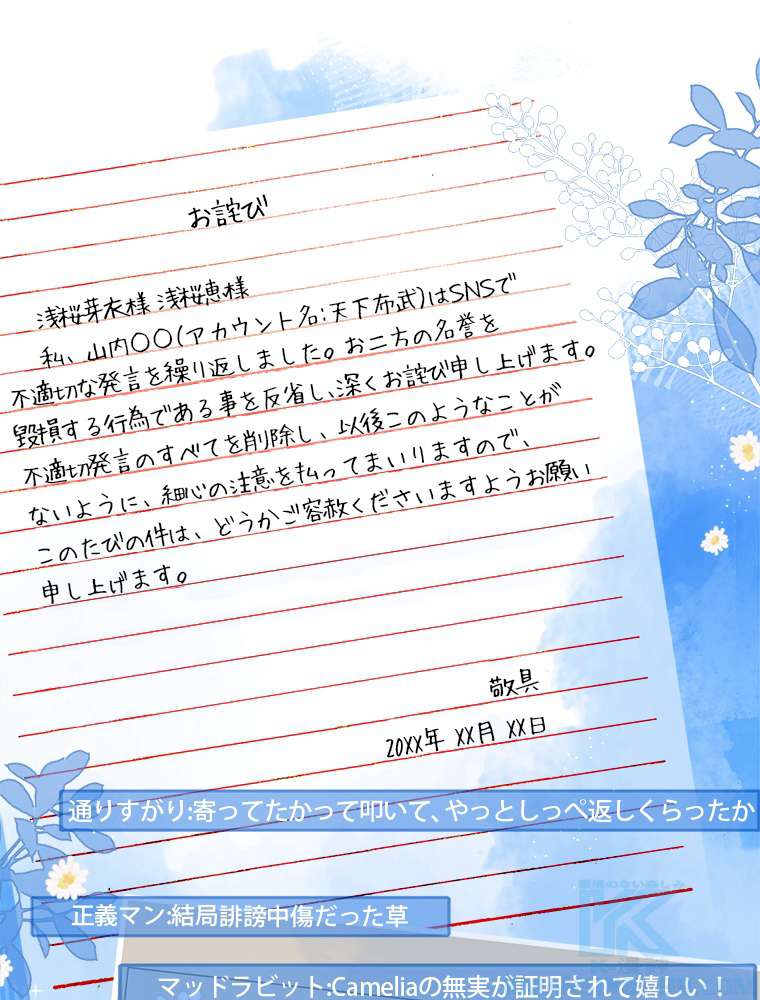 お詫び
浅桜芽衣様 浅桜恵様
私、山内〇〇(アカウント名:天下布武)はSNSで
不適切な発言を繰り返しました。お二方の名誉を
毀損する行為である事を反省し、深くお詫び申し上げます。
不適切発言のすべてを削除し、以後このようなことが
ないように、細心の注意を払ってまいりますので、
このたびの件は、どうかご容赦くださいますようお願い
申し上げます。
敬具
20XX年 XX月 XX日
通りすがり:寄ってたかって叩いて、やっとしっぺ返しくらったか
正義マン:結局誹謗中傷だった草
マッドラビット:Cameliaの無実が証明されて嬉しい!